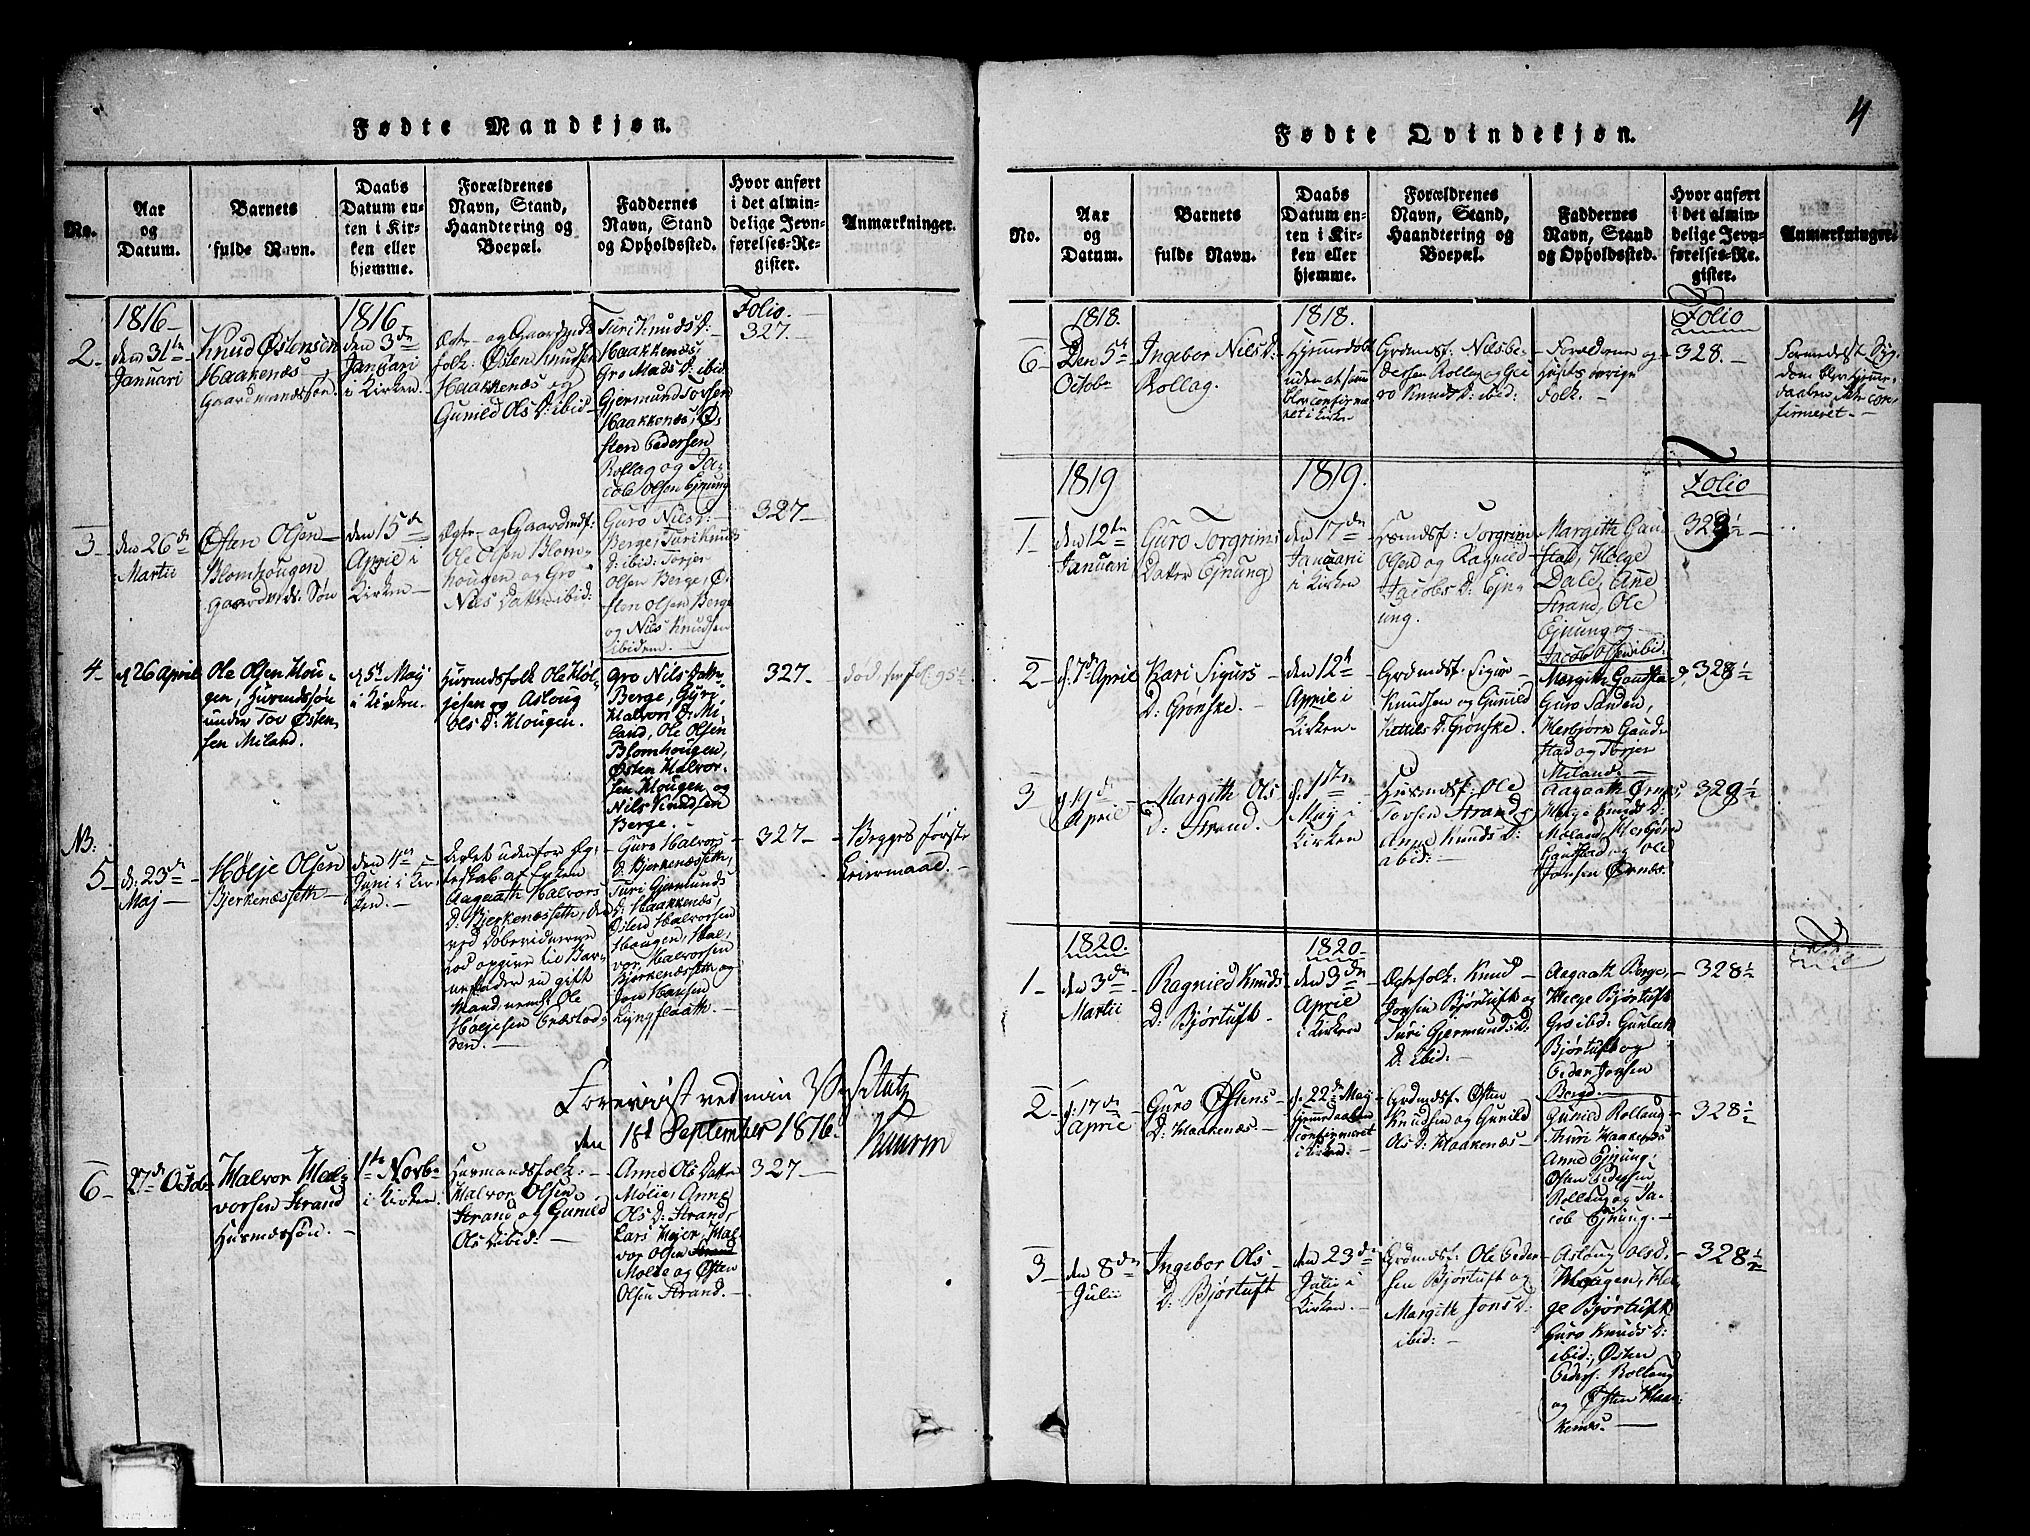 4
Fødte Mandkjøn.
No.
Aar
og
Datum.
Barnets
fulde Navn.
Daabs
Datum en-
ten i Kir-
ken eller
hjemme.
Forældrenes
Navn, Stand,
Haandtering og
Boepæl.
Faddernes
Navn, Stand
og Opholdssted.
Hvor anført
i det almin-
delige Jevn-
førelses-Re-
gister.
Anmærkninger.
2
1816
den 31te
Januari
Knud Østensen
Haakenæs
Gaardmandssøn.
1816
den 3die
Januari
i Kirken.
Ægte- og Gaardmds
folk: Østen Knudsen
Haakkenæs og
Gunild Ols D: ibid
Turi Knuds D:
Haakkenæs,
Gro Mads D: ibid
Gjermund Torsen
Haakkenæs, Ø-
sten Pedersen
Rollag og Ja-
cob Olsen Ejnung
Folio.
327.
3
den 26de
Martii
Østen Olsen
Blomhougen
Gaardmds: Søn
den 15de
April i
Kirken
Ægte- og Gaardmdf:
Ole Olsen Blom-
hougen og Gro
Nils Datter ibid:
Guro Nils D:
Berge, Turi Knuds
D: ibid: Torjer
Olsen Berge, Ø-
sten Olsen Berge
og Nils Knudsen
ibidem.
327
4
d. 26 April
Ole Olsen Hou-
gen, Husmdssøn
under Tov Østen-
sen Miland.
d. 5t Maj
i Kirken.
Husmdsfolk Ole Høl-
jesen og Asloug
Ols D: Hougen.
Gro Nils Datter
Berge, Guri
Halvors D: Mi-
land, Ole Olsen
Blomhougen,
Østen Halvor-
sen Hougen og
Nils Knudsen
Berge.
327
NB.
5
d: 23de
Maj
Hølje Olsen
Bjerkenæsseth
Juni i Kir-
ken.
Avlet udenfor Æg-
teskab af Enken
Aagaath Halvors
D: Bjerkenæsseth, der
ved Daaben
har opgivet til Bar-
nefader en gift
Mand, nemb: Ole
Høljesen
Guro Halvors
D: Bjerkenæsseth,
Turi Gjermunds
D: Haakkenæs,
Østen Halvorsen
Hougen, Hal-
vor Halvorsen
Bjerkenæsseth og
Jon Hansen
Lyngflaath.
327
Begges første
Leiermaal.
Foreviist ved min Visitatz
den 18d September 1816.
6
27de Octob
Halvor Hal-
vorsen Strand
Husmdssøn.
1te Novb
i Kirken.
Husmandsfolk:
Halvor Olsen
Strand og Gunild
Ols D ibid:
Anne Ols Datter
Anne
Ols D: Strand,
Lars Mejer, Hal-
vor Olsen Strand
og Østen
Olsen Strand.
327
Fødte Qvindekjøn.
No.
Aar
og
Datum.
Barnets
fulde Navn.
Daabs
Datum en-
ten i Kir-
ken eller
hjemme.
Forældrenes
Navn, Stand,
Haandtering og
Boepæl.
Faddernes
Navn, Stand
og Opholdssted.
Hvor anført
i det almin-
delige Jevn-
førelses-Re-
gister.
Anmærkninger.
6
1818.
Den 5t
Octobr
Ingebor Nils D:
Rollag.
1818.
Hjemmedøbt
uden at
blev confirme-
ret i Kirken
Grdmdsf: Nils Pe-
dersen Rollag og Gu-
ro Knuds D: ibid:
Forældrene og
Husets øvrige
Folk.
Folio
328.
Formedelst Syg-
dom blev hjemme-
daaben ikke con-
firmeret.
1819
1819.
Folio
1
den 12te
Januari
Guro Torgrims
Datter Ejnung
den 17de
Januari
i Kirken
Husmdsf: Torgrim
Olsen og Ragnild
Jacobs D: Ejn-
ung.
Margith Gau-
stad, Helge
Dale, Ane
Strand, Ole
Ejnung og
Jacob Olsen ibid.
328½
2
d. 7de April
Kari Sigurs
D: Grønske.
den 12te
April i
Kirken
Grdmdsf: Sigur
Knudsen og Gunild
Kettils D: Grønske.
Margith Gausta d,
Guro Sanden,
Herbjørn Gau-
stad og Torjer
Miland.
328½
3
April
Margith Ols
D: Strand.
d. 1ste
Maj i
Kirken
Husmdsf: Ole
Torsen Strand
Anne Knuds D:
ibid:
Aagaath Ørnes,
Helge Knuds D:
Miland, Herbjørn
Gaustad og Ole
Jonsen Ørnes.
329½
1820.
1820.
1
den 3de
Martii
Ragnild Knuds
D: Bjørtuft.
den 3de
April
i Kirken
Ægtefolk: Knud
Jonsen Bjørtuft og
Turi Gjermunds D:
D: ibid:
Aagaath Berge,
Helge Bjørtuft
Gro ibid: Gunleik
Bjørtuft og
Peder Jonsen
Berge.
328½
2
d: 17de
April
Guro Østens
D: Haakenæs.
d. 22de Maj
hjemmedaaben
confirmeret
i Kirken.
Grdmdsf: Østen
Knudsen og Gunild
Ols D: Haakenæs.
Gunild Rollaug
Thuri Haakenæs
Anne Ejnung,
Østen Pedersen
Rollaug og Ja-
cob Ejnung.
328½
3
den 8de
Julii
Ingebor Ols
D: Bjørtuft
den 23de
Julii i
Kirken.
Grdmdsf: Ole Peder-
sen Bjørtuft og
Margith Jons D:
ibid:
Asloug Ols D,
Hougen, Hel-
ge Bjørtuft
Guro Knuds D:
ibid:, Østen
Peders: Rollaug
og Østen Haa-
kenæs.
328½